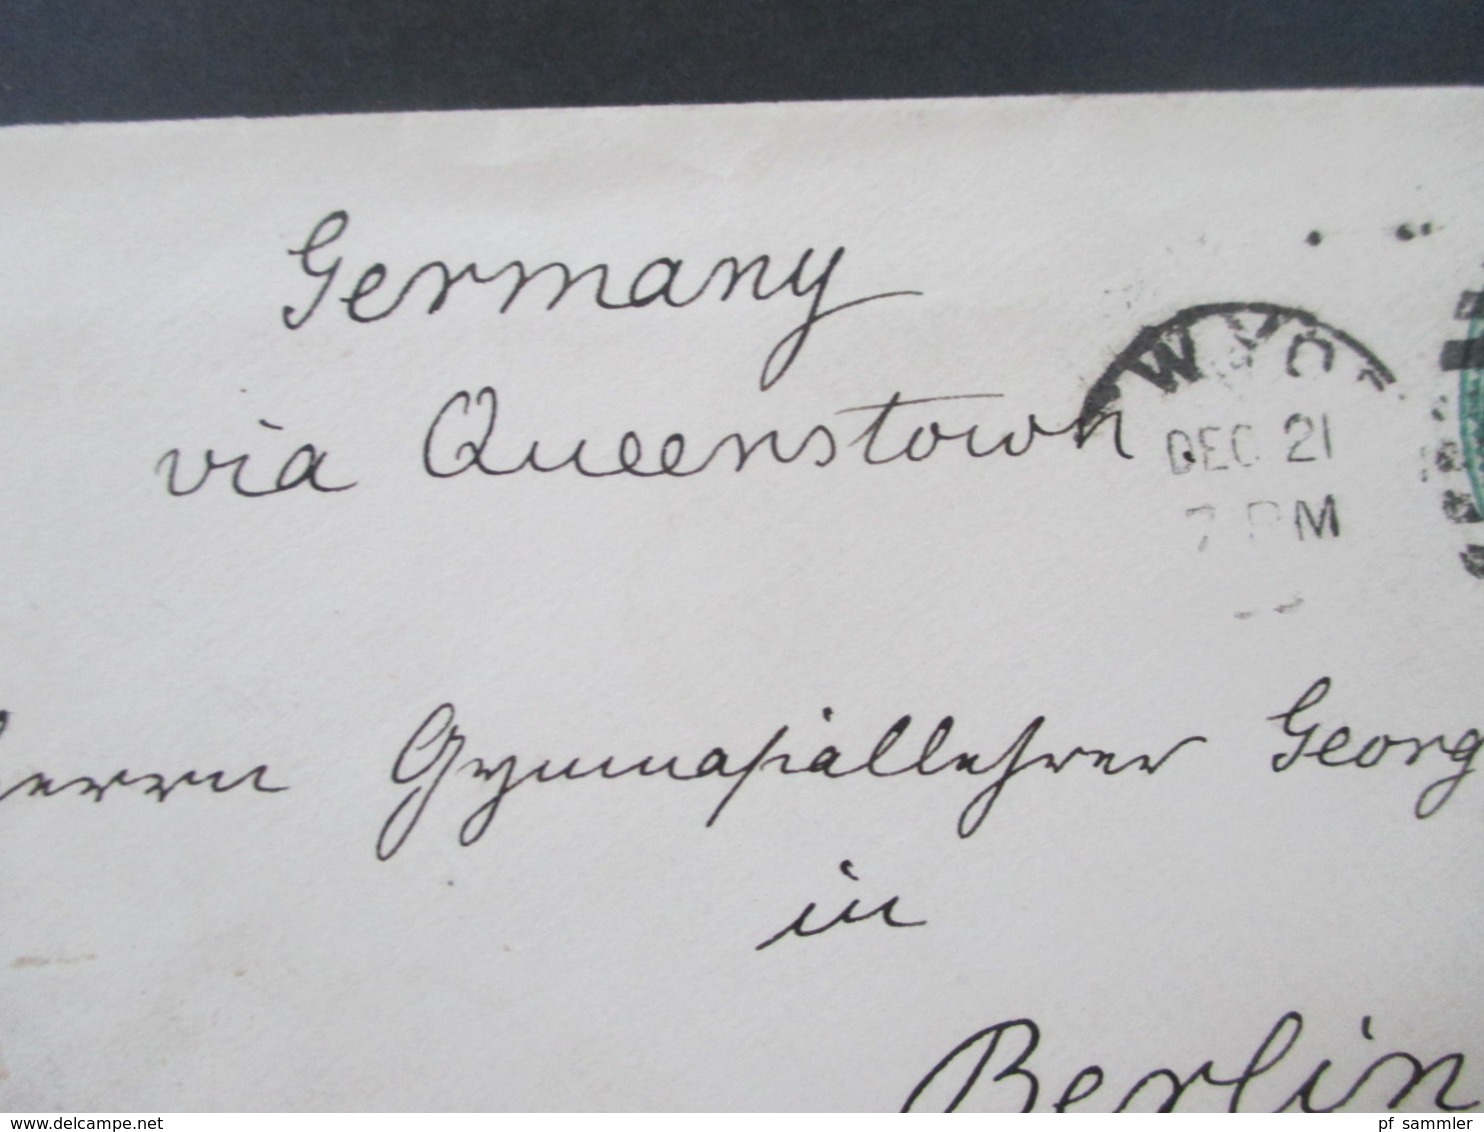 Germany
via Queenstown.
W YO
DEC 21
7 PM
Herrn Gymnasiallehrer Georg
in
Berlin
www.delcampe.net
pf_sammler